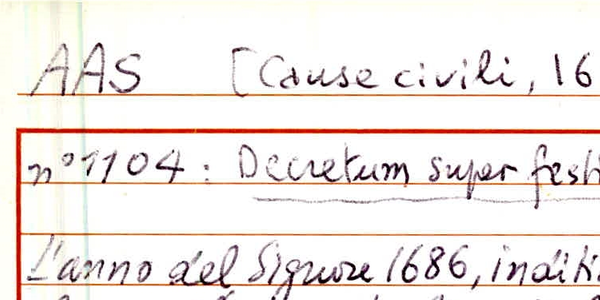 AAS [Cause civili, 16
n° 1104: Decretum super festi
L'anno del Signore 1686, inditi